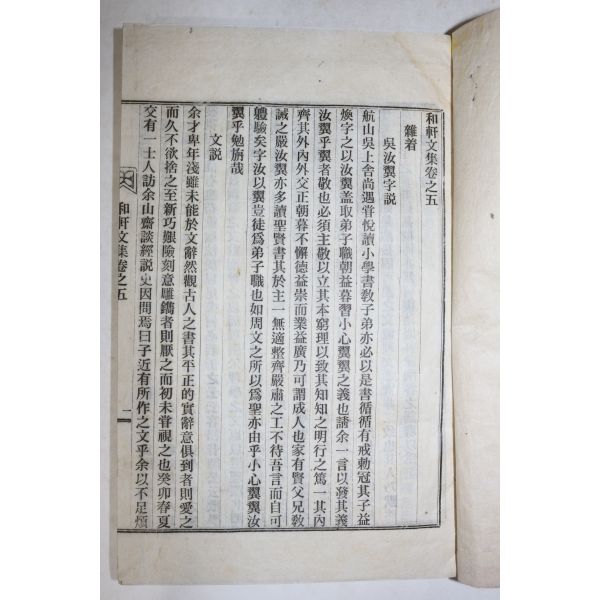 和軒文集卷之五
雜着
吳汝翼字說
航山吳上舍尚遇甞悅讀小學書敎子弟亦必以是書循循有戒勅冠其子益
煥字之以汝翼盖取弟子職朝益暮習小心翼翼之義也請余一言以發其義
汝翼乎翼者敬也必須主敬以立其本窮理以致其知知之明行之篤一其內
齊其外內外交正朝暮不懈德益崇而業益廣乃可謂成人也家有賢父兄敎
誡之嚴汝翼亦多讀聖賢書其於主一無適整齊嚴肅之工不待吾言而自可
軆驗矣字汝以翼豈徒爲弟子職也如周文之所以爲聖亦由乎小心翼翼汝
翼乎勉旃哉
文説
余才卑年淺雖未能於文辭然觀古人之書其平正的實辭意俱到者則愛之
而久不欲捨之至新巧艱險刻意雕鐫者則厭之而初未甞視之也癸卯春夏
交有一士人訪余山齋談經説史因問焉曰子近有所作之文乎余以不足煩
和軒文集卷之五
一